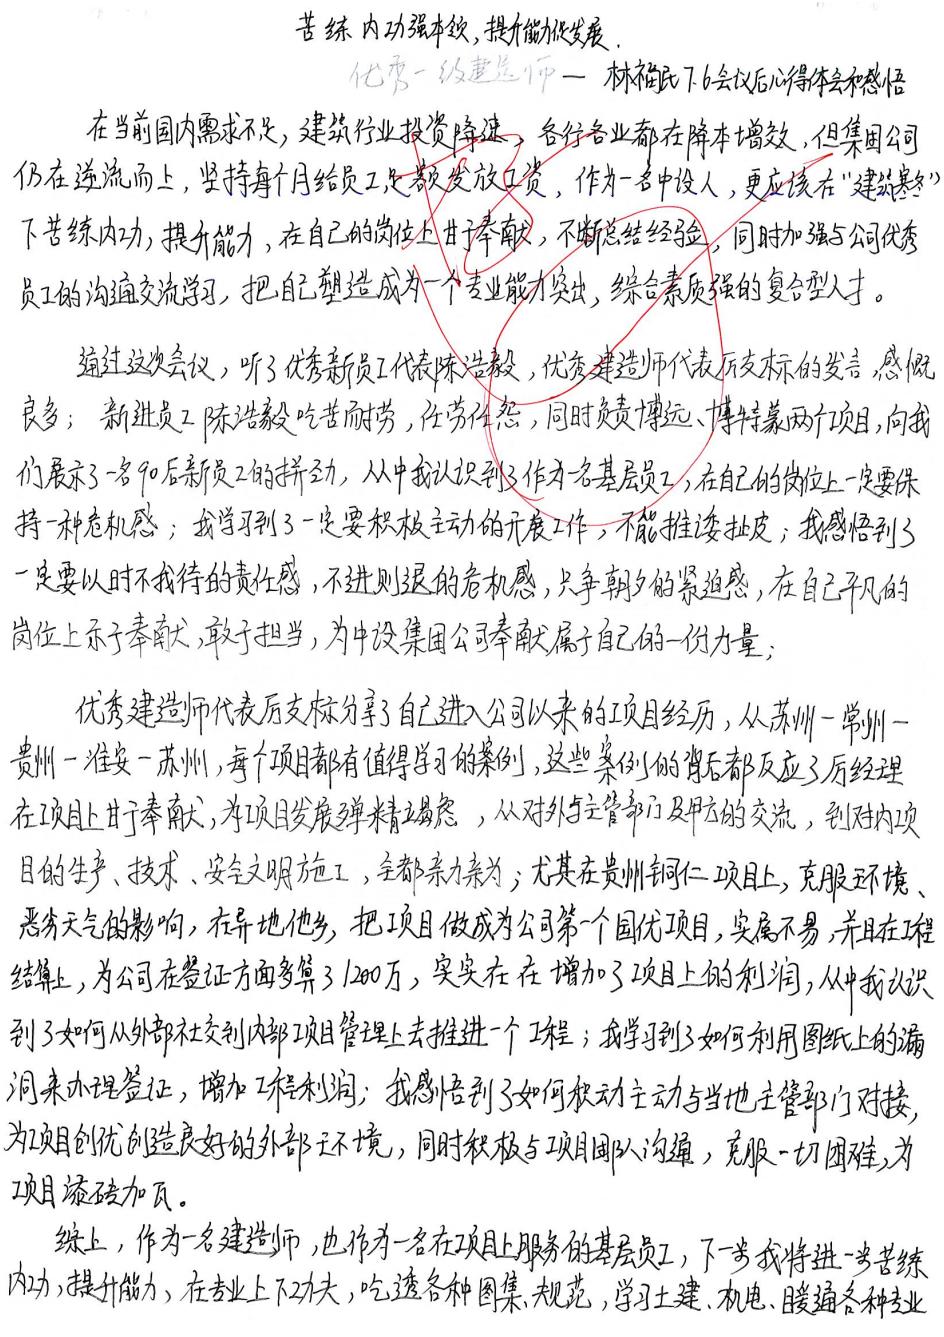 苦练内功强本领,提升能力促发展.
优秀一级建造师— 林福民7.6会议后心得体会和感悟
在当前国内需求不足,建筑行业投资降速,各行各业都在降本增效,但集团公司
仍在逆流而上,坚持每个月给员工足额发放工资,作为一名中设人,更应该在“建筑寒冬”
下苦练内功,提升能力,在自己的岗位上甘于奉献,不断总结经验,同时加强与公司优秀
员工的沟通交流学习,把自己塑造成为一个专业能力突出,综合素质强的复合型人才。
通过这次会议,听了优秀新员工代表陈浩毅,优秀建造师代表厉支标的发言,感慨
良多;新进员工陈浩毅吃苦而耐劳,任劳任怨,同时负责博远、博特蒙两个项目,向我
们展示了一名90后新员工的拼劲,从中我认识到了作为一名基层员工,在自己的岗位上一定要保
持一种危机感;我学习到了一定要积极主动的开展工作,不能推诿扯皮;我感悟到了
一定要以时不我待的责任感,不进则退的危机感,只争朝夕的紧迫感,在自己平凡的
岗位上乐于奉献,敢于担当,为中设集团公司奉献属于自己的一份力量;
优秀建造师代表厉支标分享了自己进入公司以来的项目经历,从苏州一常州一
贵州一淮安一苏州,每个项目都有值得学习的案例,这些案例的背后都反应了厉经理
在项目上甘于奉献,为项目发展殚精竭虑,从对外与主管部门及甲方的交流,到对内项
目的生产、技术、安全文明施工,全都亲力亲为;尤其在贵州铜仁项目上,克服环境、
恶劣天气的影响,在异地他乡,把项目做成为公司第一个国优项目,实属不易,并且在工程
结算上,为公司在签证方面多算了1200万,实实在在增加了项目上的利润,从中我认识
到了如何从外部社交到内部项目管理上去推进一个工程;我学习到了如何利用图纸上的漏
洞来办理签证,增加工程利润;我感悟到了如何积动主动与当地主管部门对接,
为项目创优创造良好的外部环境,同时积极与项目团队沟通,克服一切困难,为
项目添砖加瓦。
综上,作为一名建造师,也作为一名在项目上服务的基层员工,下一步我将进一步苦练
内功,提升能力,在专业上下功夫,吃透各种图集、规范,学习土建、机电、暖通各种专业